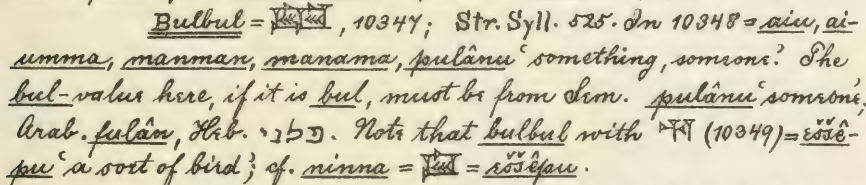 Bulbul = , 10347; Str. Syll. 525. In 10348 = aiu, ai-
umma, manman, manama, pulânu ‘something, someone.’ The
bul-value here, if it is bul, must be from Sem. pulânu ‘someone,’
Arab. fulân, Heb. פלני. Note that bulbul with (10349) = eššê-
pu ‘a sort of bird’; cf. ninna = = eššêpu.